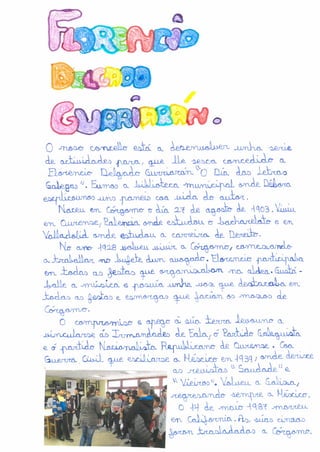 FLORENCIO
DELGADO
GURRIARÁN.
O noso concello está a desenvolver unha serie
de actividades para, que lle sexa concedido a
Florencio Delgado Gurriarán "O Día das Letras
Galegas". Fumos a biblioteca municipal onde Débora
explicounos uns paneis coa vida do autor.
Naceu en Córgomo o día 27 de agosto de 1903. Viviu
en Ourense, Palencia onde estudou o bacharelato e en
Valladolid onde estudou a carreira de Dereito.
No ano 1928 volveu vivir a Córgomo, comezando
a traballar no bufete dun avogado. Florencio participaba
en todas as festas que organizaban na aldea. Gustá-
balle a música e posuía unha voz que destacaba en
todas as festas e esmorgas que facían os mozos de
Córgomo.
O compromiso e apego á súa terra levouno a
vincularse ás Irmandades de Fala, ó Partido Galeguista
e ó partido Nacionalista Republicano de Ourense. Coa
Guerra Civil que exiliarse a México en 1939, onde dirixe
as revistas "Saudade" e
"Vieiros". Volveu a Galiza,
regresando sempre a México.
O 14 de maio 1987 morreu
en California. As súas cinzas
foron trasladadas a Córgomo.